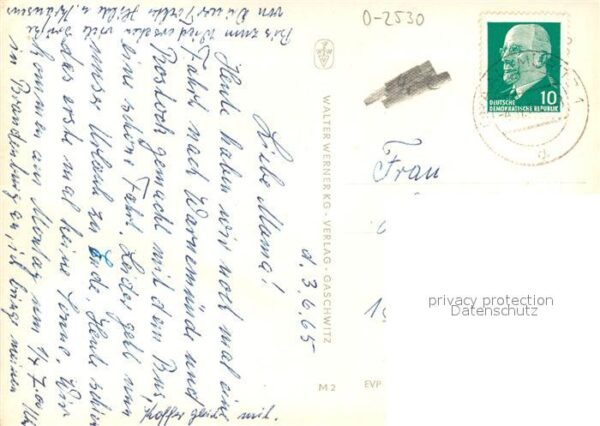 d. 3.6.65
Liebe Mama!
Heute haben wir noch mal eine
Fahrt nach Warnemünde und
Rostock gemacht mit dem Bus,
eine schöne Fahrt. Leider geht nun
unser Urlaub zu Ende. Heute schien
das erste mal keine Sonne. Wir
kommen am Montag um 14.7.00 Uhr
in Brandenburg an, ich bringe meinen
mit
Bis zum Wiedersehen viele Grüße
von Deiner Tochter Hilde u.
WALTER WERNER KG · VERLAG · GASCHWITZ
M 2
EVP
O-2530
10
DEUTSCHE
DEMOKRATISCHE REPUBLIK
Frau
privacy protection
Datenschutz